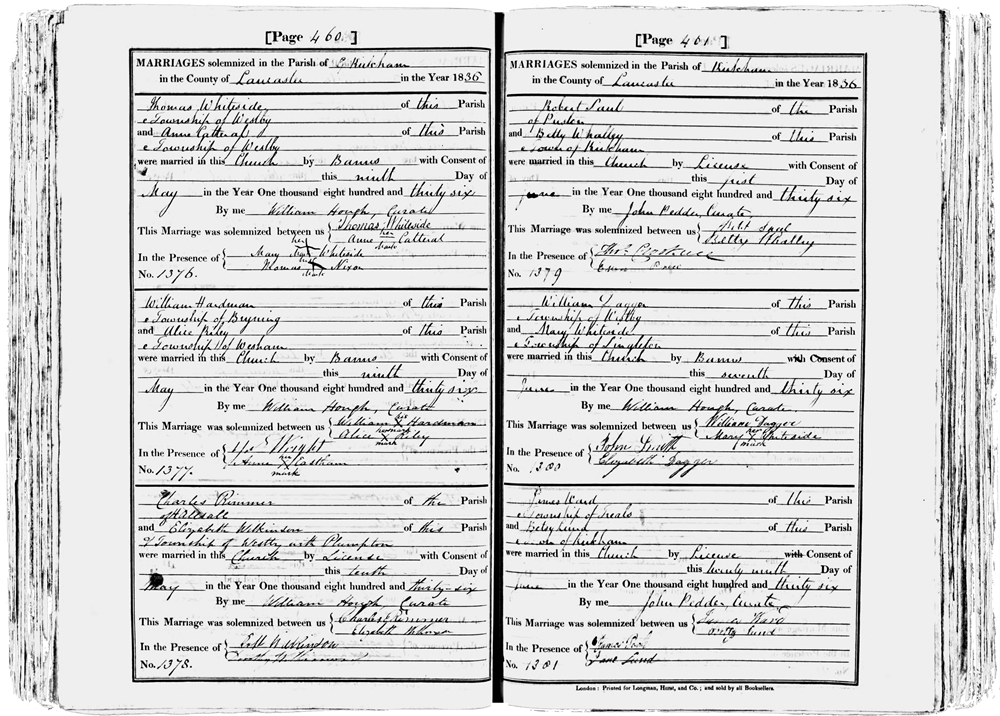 [Page 460.]
MARRIAGES solemnized in the Parish of Kirkham
in the County of Lancaster in the Year 1836
Thomas Whiteside of this Parish
Township of Westby
and Anne Catteral of this Parish
Township of Westby
were married in this Church by Banns with Consent of
this ninth Day of
May in the Year One thousand eight hundred and thirty six
By me William Hough, Curate
This Marriage was solemnized between us Thomas Whiteside
Anne her mark Catteral
In the Presence of Mary her mark Whiteside
Thomas his mark Nixon
No. 1376.
William Hardman of this Parish
Township of Bryning
and Alice Riley of this Parish
Township of Wesham
were married in this Church by Banns with Consent of
this ninth Day of
May in the Year One thousand eight hundred and thirty six
By me William Hough, Curate
This Marriage was solemnized between us William X Hardman
Alice X Riley
mark
In the Presence of Wright
Anne her X mark Eastham
No. 1377.
Charles Rimmer of the Parish
of Halsall
and Elizabeth Wilkinson of this Parish
of Township of Westby with Plumpton
were married in this Church by License with Consent of
this tenth Day of
May in the Year One thousand eight hundred and thirty-six
By me William Hough, Curate
This Marriage was solemnized between us Charles Rimmer
Elizabeth Wilkinson
In the Presence of Wilkinson
No. 1378.
[Page 461]
MARRIAGES solemnized in the Parish of Kirkham
in the County of Lancaster in the Year 1836
Robert Saul of the Parish
of Preston
and Betty Whalley of this Parish
Town of Kirkham
were married in this Church by License with Consent of
this first Day of
June in the Year One thousand eight hundred and thirty six
By me John Pedder, Curate,
This Marriage was solemnized between us Saul
Whalley
In the Presence of Thos.
No. 1379
William Dagger of this Parish
Township of Westby
and Mary Whiteside of this Parish
Township of Singleton
were married in this Church by Banns with Consent of
this seventh Day of
June in the Year One thousand eight hundred and thirty six
By me William Hough, Curate,
This Marriage was solemnized between us William Dagger
Mary her X mark Whiteside
In the Presence of John
Elizabeth Dagger
No. 1380
James Ward of this Parish
Township of Treals
and Betsy Lund of this Parish
Town of Kirkham
were married in this Church by License with Consent of
this twenty ninth Day of
June in the Year One thousand eight hundred and thirty six
By me John Pedder, Curate,
This Marriage was solemnized between us James Ward
Lund
In the Presence of
Jane Lund
No. 1381
London: Printed for Longman, Hurst, and Co.; and sold by all Booksellers.